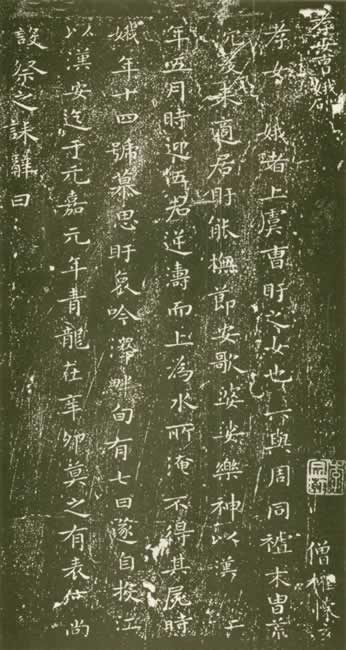 孝女曹娥碑
孝女娥者上虞曹盱之女也其與周同祖末胄荒
沉爰來適居盱能撫節安歌婆娑樂神以漢二
年五月時迎伍君逆濤而上為水所淹不得其屍時
娥年十四號慕思盱哀吟澤畔旬有七日遂自投江
以漢安迄于元嘉元年青龍在辛卯莫之有表度尚
設祭之誄辭曰
僧權